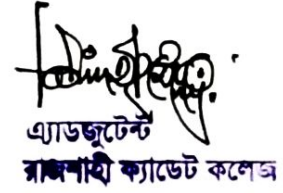 এ্যাডজুটেন্ট
রাজশাহী ক্যাডেট কলেজ